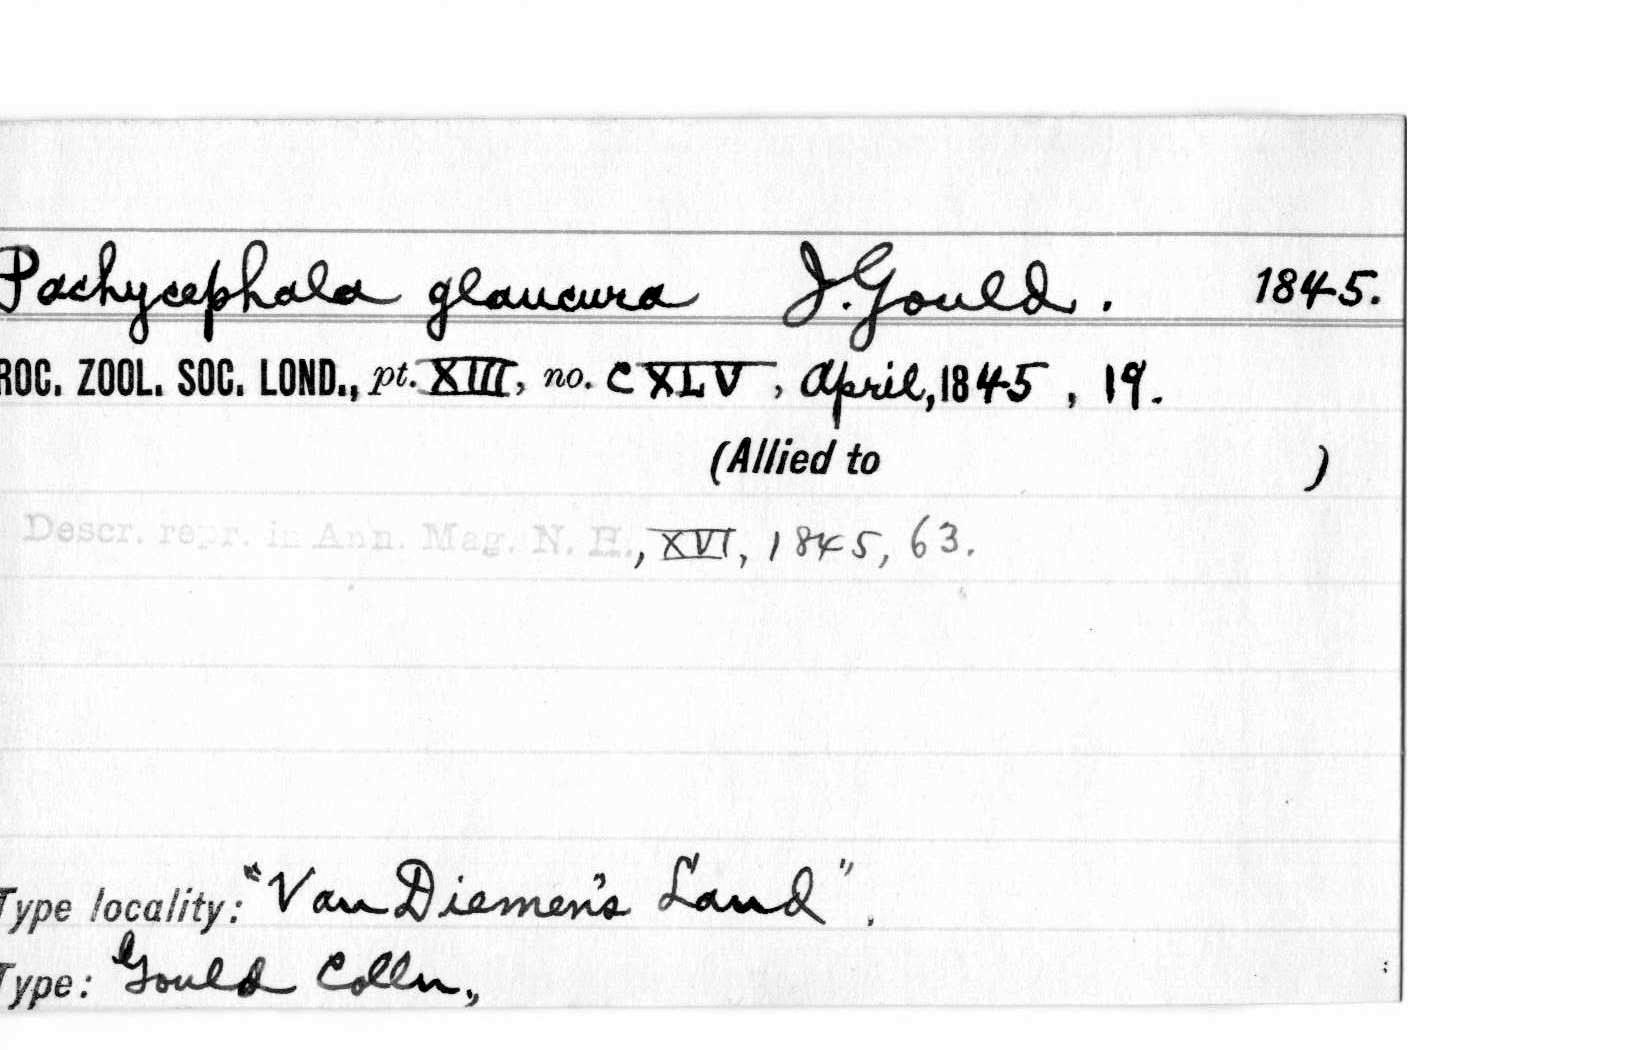 Pachycephala glaucura J. Gould. 1845.
ROC. ZOOL. SOC. LOND., pt. XIII, no. CXLV, April, 1845, 19.
(Allied to )
Descr. repr. in Ann. Mag. N. H., XVI, 1845, 63.
Type locality: "Van Diemen's Land".
Type: Gould Colln.,